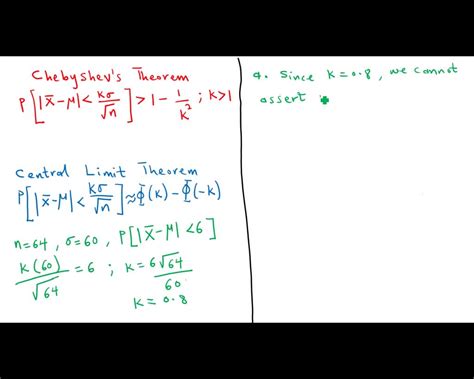 Chebyshev's Theorem
P[|x̄-μ|< kσ/√n] > 1 - 1/k² ; k>1
Central Limit Theorem
P[|x̄-μ|< kσ/√n] ≈ Φ(k) - Φ(-k)
n=64, σ=60, P[|x̄-μ|<6]
k(60)/√64 = 6 ; k = 6√64/60
k = 0.8
a. Since k=0.8, we cannot
assert